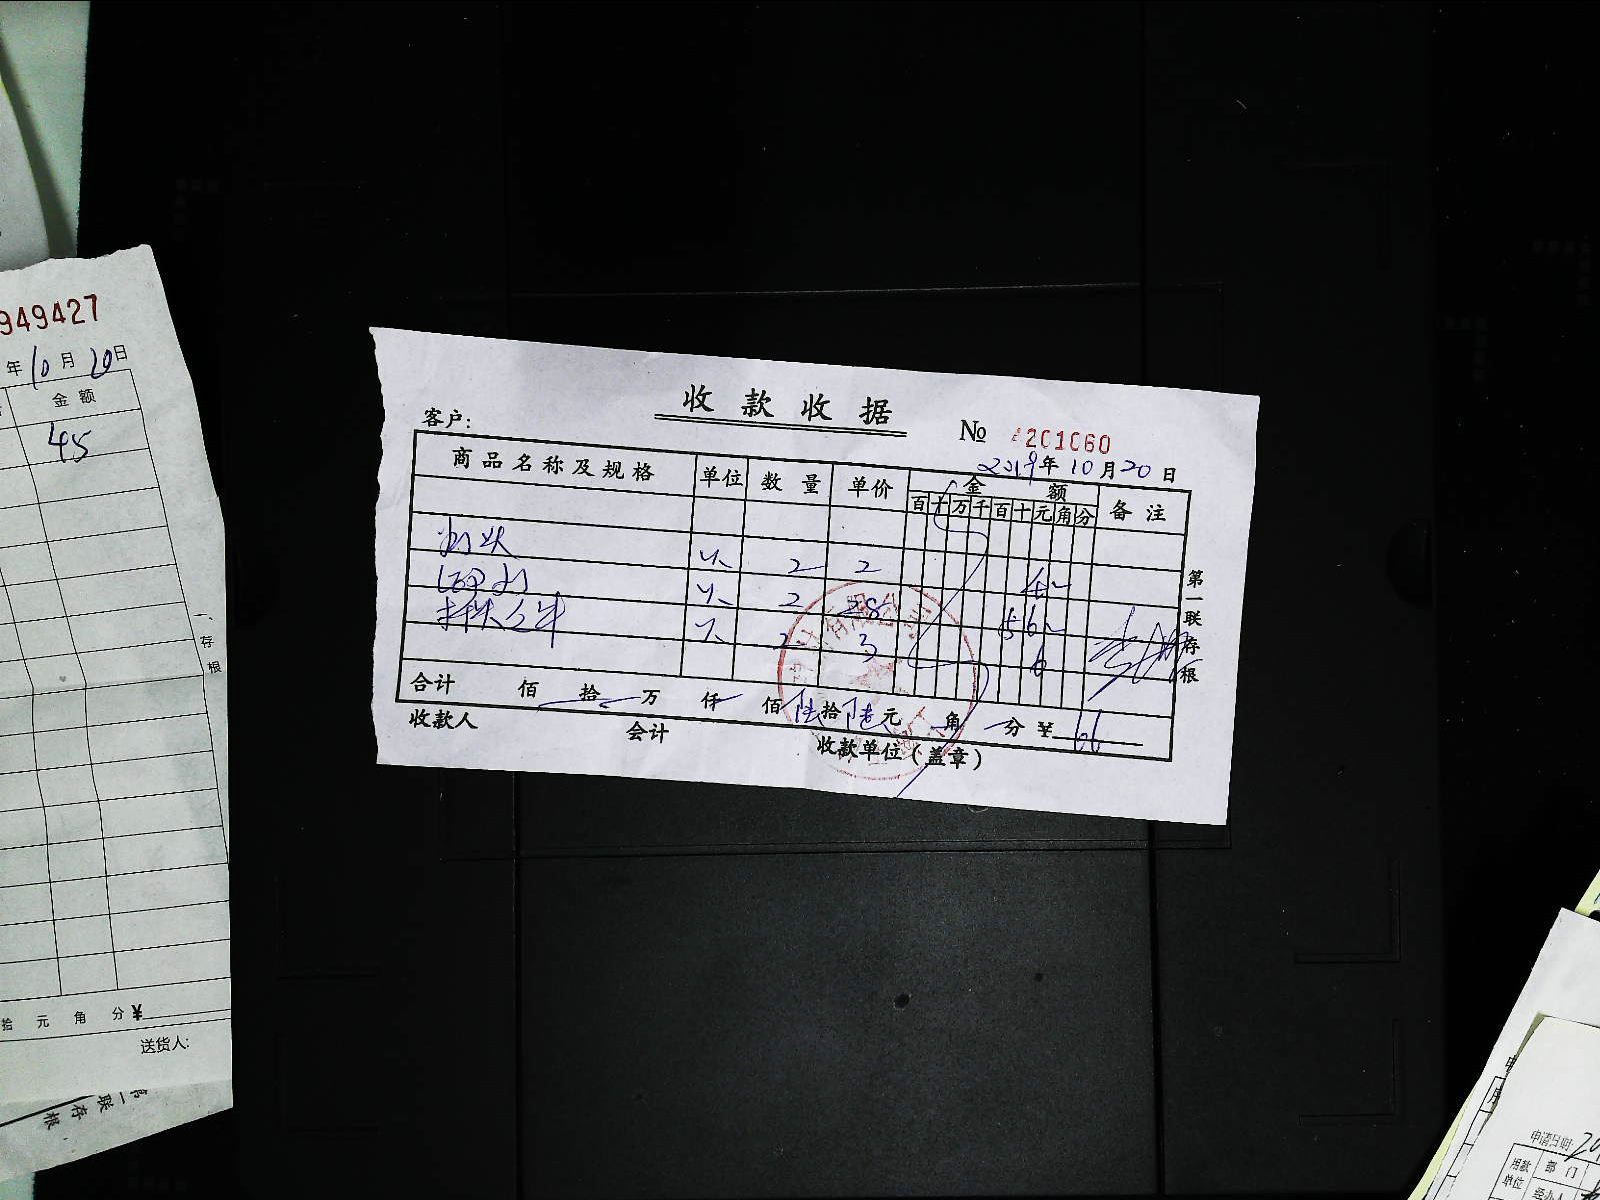 收款收据
客户:
№ 4201060
2019年10月20日
商品名称及规格 单位 数量 单价 金额 备注
百十万千百十元角分
2 2 4
2 28 56
2 3 6
合计 佰 拾 万 仟 佰 陆拾陆元 角 分 ¥ 66
收款人 会计 收款单位(盖章)
第一联存根
949427
年10月20日
金额
45
一、存根
拾元角分¥
送货人:
第一联存根
申请日期: 20
用款单位 部门
经办人